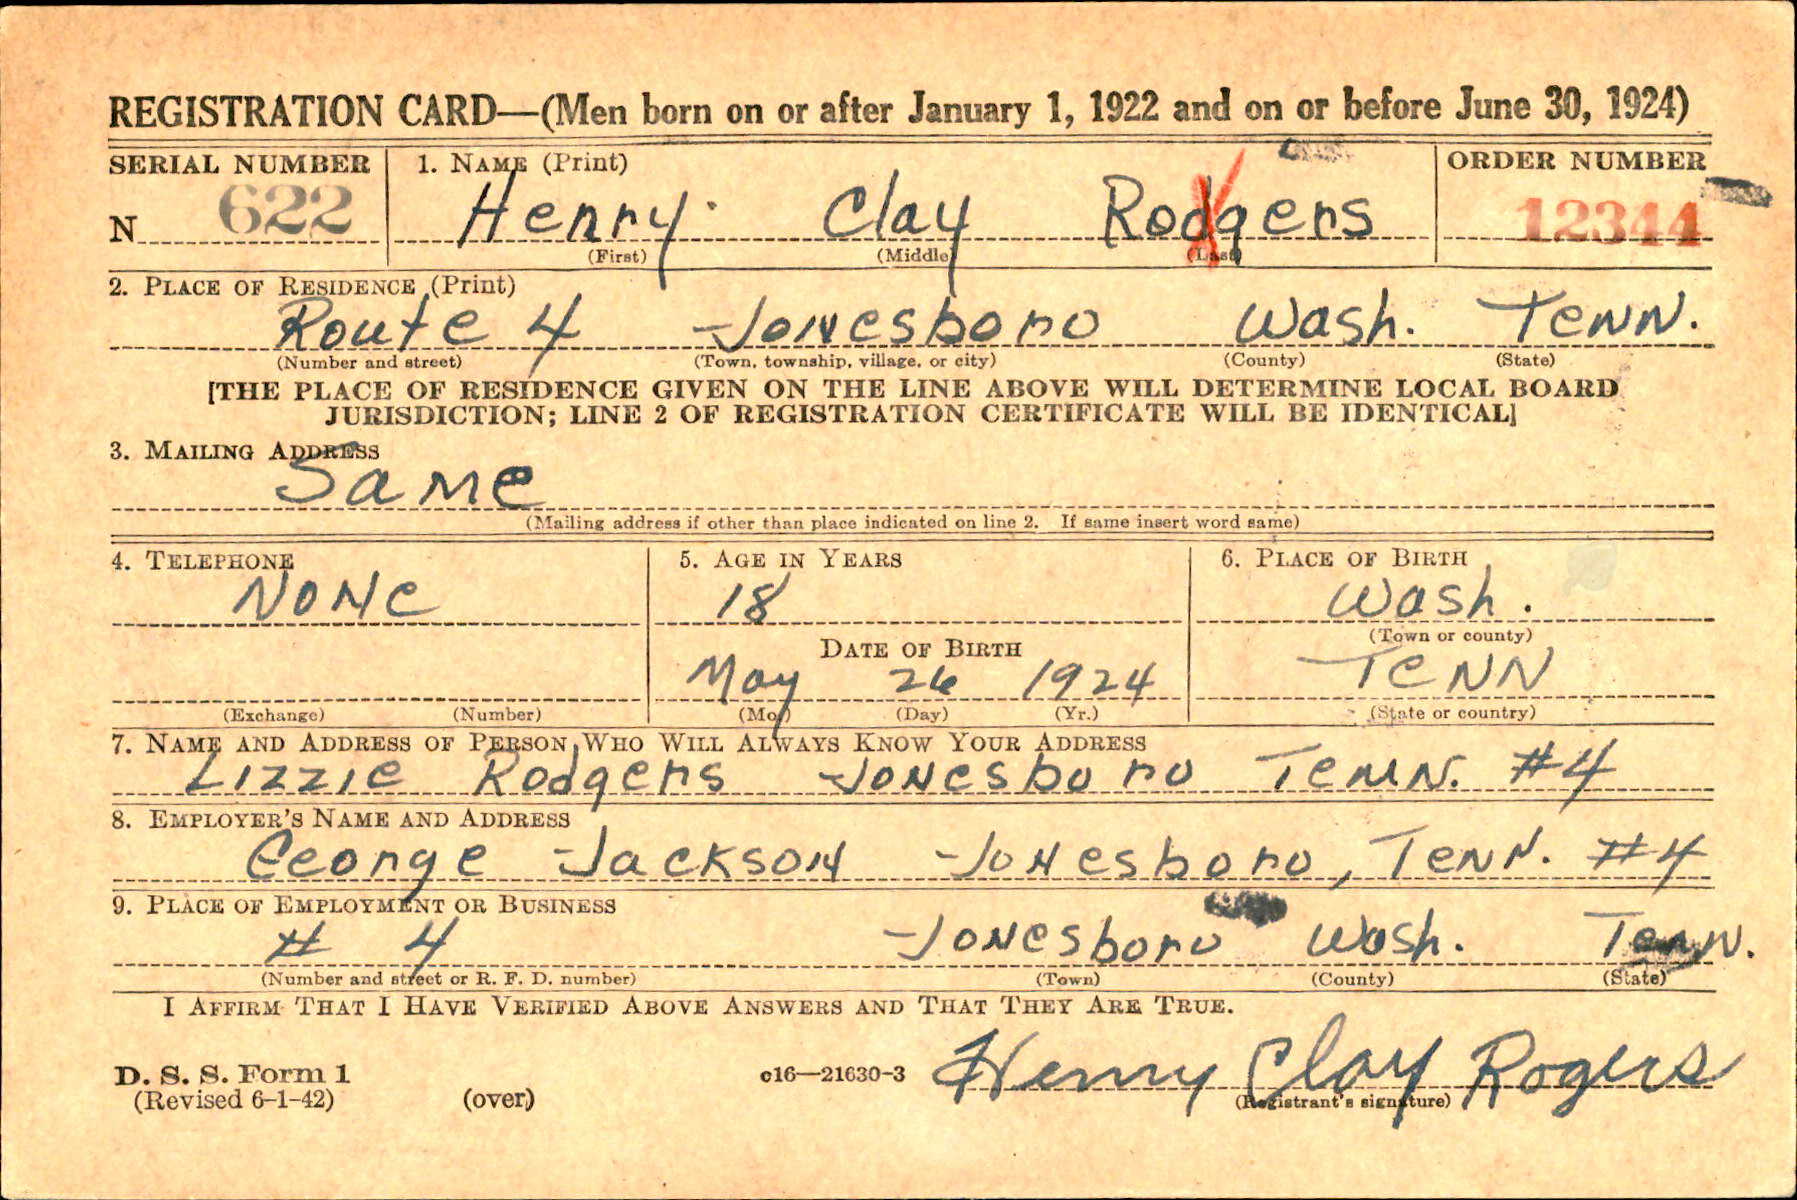 REGISTRATION CARD—(Men born on or after January 1, 1922 and on or before June 30, 1924)
SERIAL NUMBER 1. NAME (Print) ORDER NUMBER
N 622 Henry Clay Rodgers 12344
(First) (Middle) (Last)
2. PLACE OF RESIDENCE (Print)
Route 4 Jonesboro Wash. Tenn.
(Number and street) (Town, township, village, or city) (County) (State)
[THE PLACE OF RESIDENCE GIVEN ON THE LINE ABOVE WILL DETERMINE LOCAL BOARD
JURISDICTION; LINE 2 OF REGISTRATION CERTIFICATE WILL BE IDENTICAL]
3. MAILING ADDRESS
Same
(Mailing address if other than place indicated on line 2. If same insert word same)
4. TELEPHONE 5. AGE IN YEARS 6. PLACE OF BIRTH
None 18 Wash.
(Town or county)
DATE OF BIRTH
May 26 1924 Tenn
(Exchange) (Number) (Mo.) (Day) (Yr.) (State or country)
7. NAME AND ADDRESS OF PERSON WHO WILL ALWAYS KNOW YOUR ADDRESS
Lizzie Rodgers Jonesboro Tenn. #4
8. EMPLOYER'S NAME AND ADDRESS
George Jackson Jonesboro, Tenn. #4
9. PLACE OF EMPLOYMENT OR BUSINESS
# 4 Jonesboro Wash. Tenn.
(Number and street or R. F. D. number) (Town) (County) (State)
I AFFIRM THAT I HAVE VERIFIED ABOVE ANSWERS AND THAT THEY ARE TRUE.
D. S. S. Form 1 c16—21630-3 Henry Clay Rogers
(Revised 6-1-42) (over) (Registrant's signature)